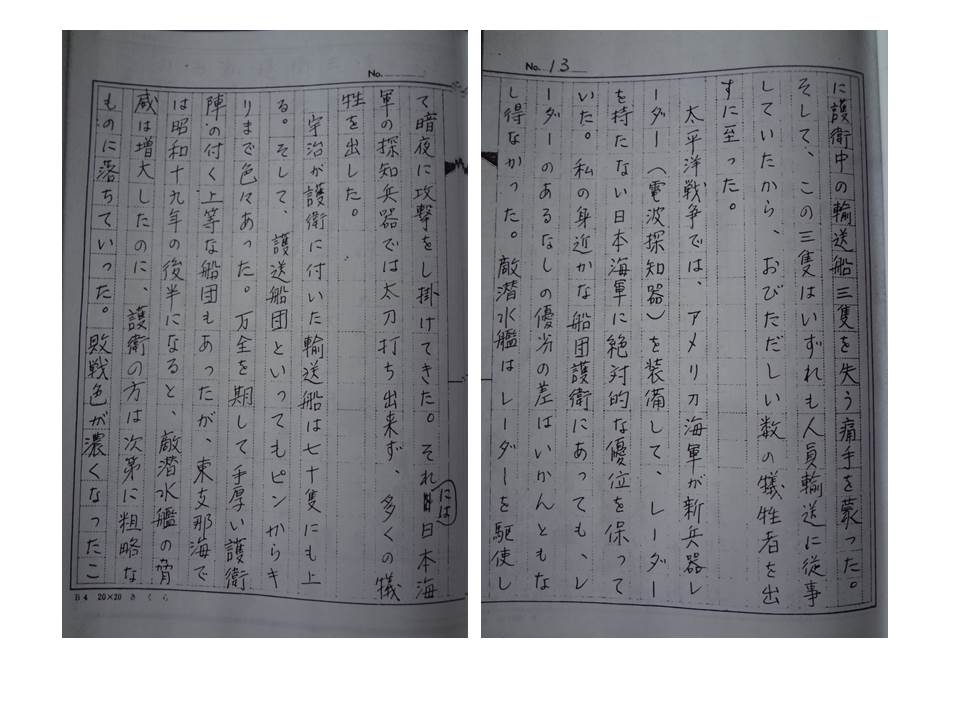 No. 13
に護衛中の輸送船三隻を失う痛手を蒙った。
そして、この三隻はいずれも人員輸送に従事
していたから、おびただしい数の犠牲者を出
すに至った。
太平洋戦争では、アメリカ海軍が新兵器レ
ーダー(電波探知器)を装備して、レーダー
を持たない日本海軍に絶対的な優位を保って
いた。私の身近かな船団護衛にあっても、レ
ーダーのあるなしの優劣の差はいかんともな
し得なかった。敵潜水艦はレーダーを駆使し
No.
て暗夜に攻撃をし掛けてきた。それには日本海
軍の探知兵器では太刀打ち出来ず、多くの犠
牲を出した。
宇治が護衛に付いた輸送船は七十隻にも上
る。そして、護送船団といってもピンからキ
リまで色々あった。万全を期して手厚い護衛
陣の付く上等な船団もあったが、東支那海で
は昭和十九年の後半になると、敵潜水艦の脅
威は増大したのに、護衛の方は次第に粗略な
ものに落ちていった。敗戦色が濃くなったこ
B4 20×20 さくら